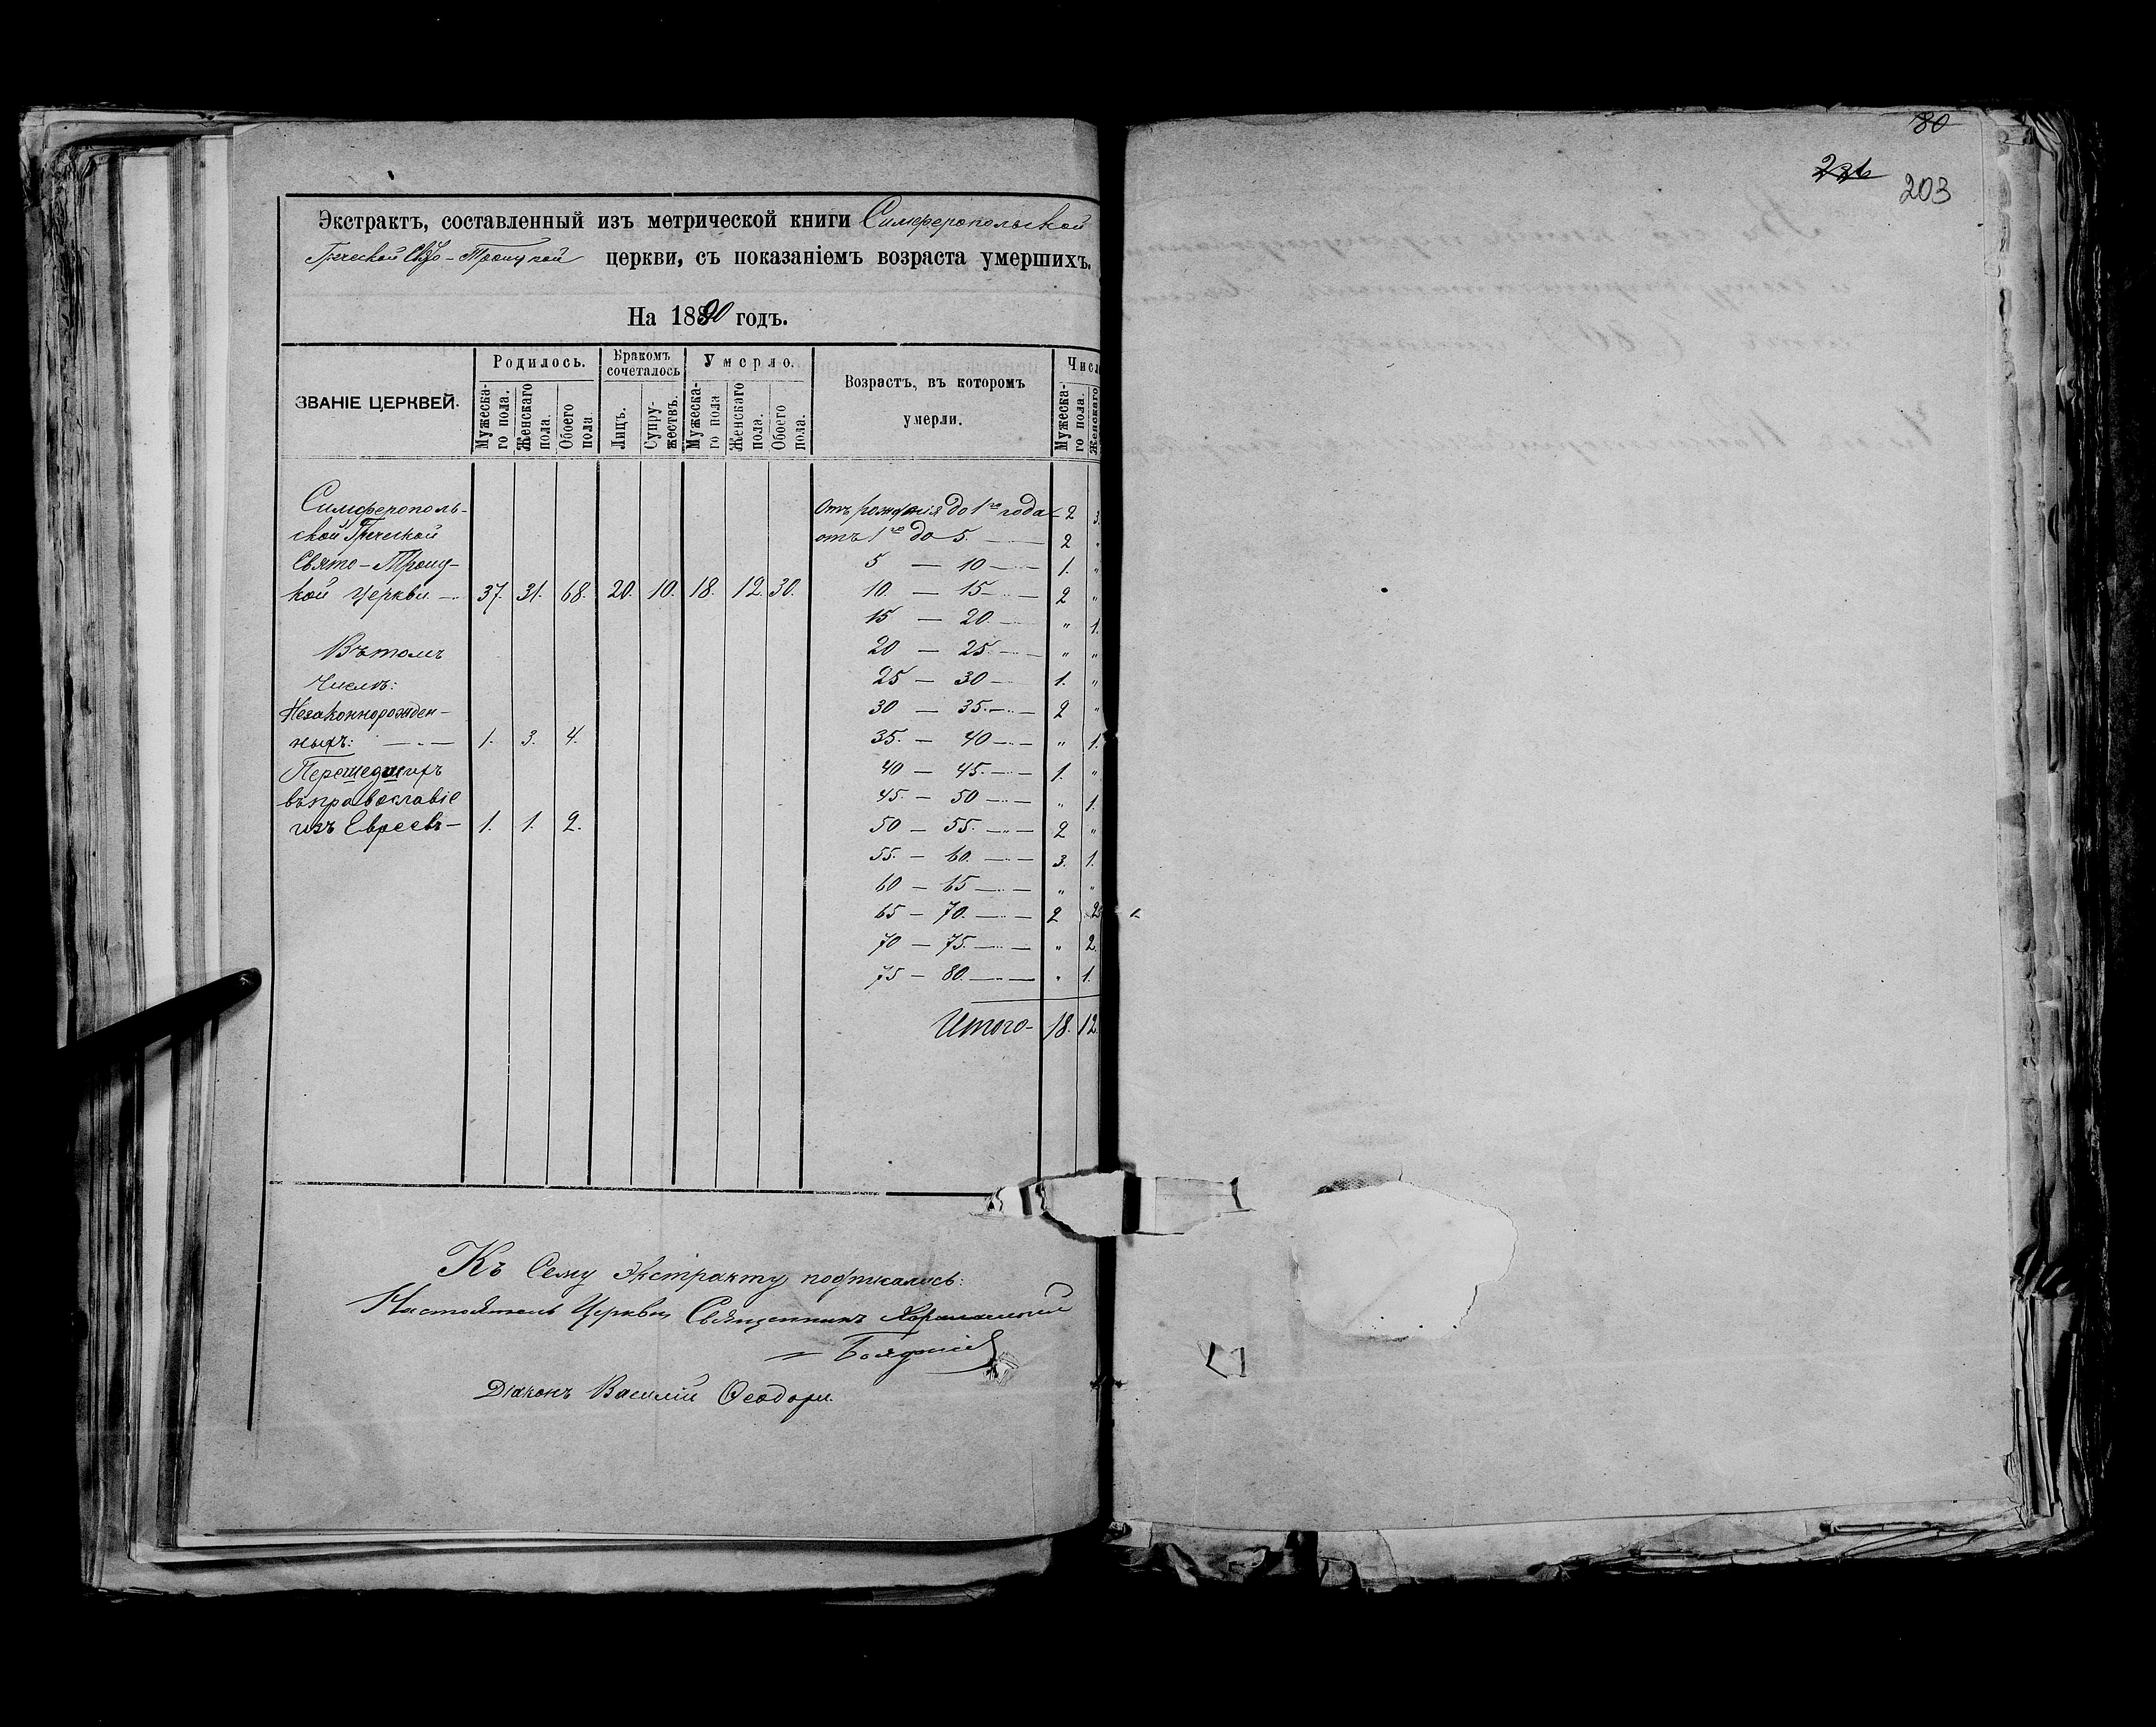 Экстрактъ, составленный изъ метрической книги Симферопольской
Греческой Свято-Троицкой церкви, съ показаніемъ возраста умершихъ.
На 1890 годъ.
ЗВАНІЕ ЦЕРКВЕЙ.
Родилось.
Мужескаго пола.
Женскаго пола.
Обоего пола.
Бракомъ сочеталось
Лицъ.
Супружествъ.
Умерло.
Мужескаго пола
Женскаго пола.
Обоего пола.
Возрастъ, въ которомъ
умерли.
Числ
Мужескаго пола.
Женскаго
Симферополь-
ской Греческой
Свято-Троиц-
кой Церкви. — 37. 31. 68. 20. 10. 18. 12. 30.
Въ томъ
Числѣ:
Незаконнорожден-
ныхъ: — 1. 3. 4.
Перешедшихъ
въ православіе
изъ Евреевъ — 1. 1. 2.
Отъ рожденія до 1го года 2 3.
отъ 1го до 5. — 2 "
5 — 10 — 1. "
10. — 15 — 2 "
15 — 20. — " 1.
20 — 25. — " "
25 — 30 — 1. "
30 — 35. — 2 "
35. — 40 — " 1.
40 — 45. — 1. "
45. — 50 — " 1.
50 — 55. — 2 "
55. — 60. — 3. 1.
60 — 65 — " "
65 — 70. — 2 2
70 — 75. — " 2.
75 — 80. — " 1.
Итого — 18. 12.
Къ Сему Экстракту подписались:
Настоятель Церкви Священникъ Харалампій
Діаконъ Василій Ѳеодори.
80
203